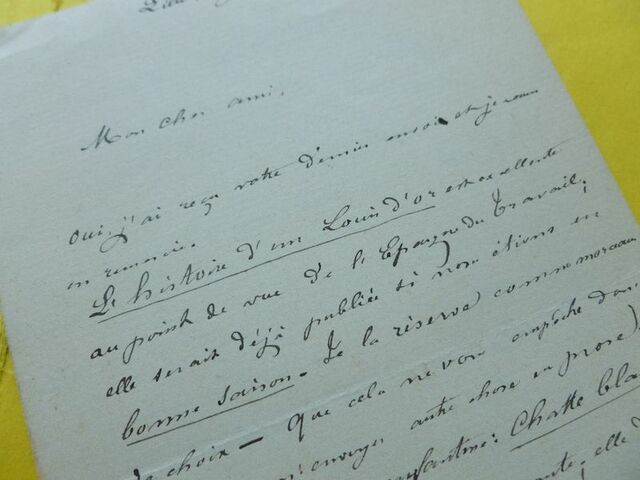 Mon cher ami,
Oui, j'ai reçu votre dernier envoi et je vous
en remercie.
L'histoire d'un Louis d'or est excellente
au point de vue de l'Epargne du Travail;
elle serait déjà publiée si nous étions en
bonne saison. Je la réserve comme morceau
de choix — Que cela ne vous empêche d'en
m'envoyer autre chose en prose)
enfantine: Chatte bla
elle